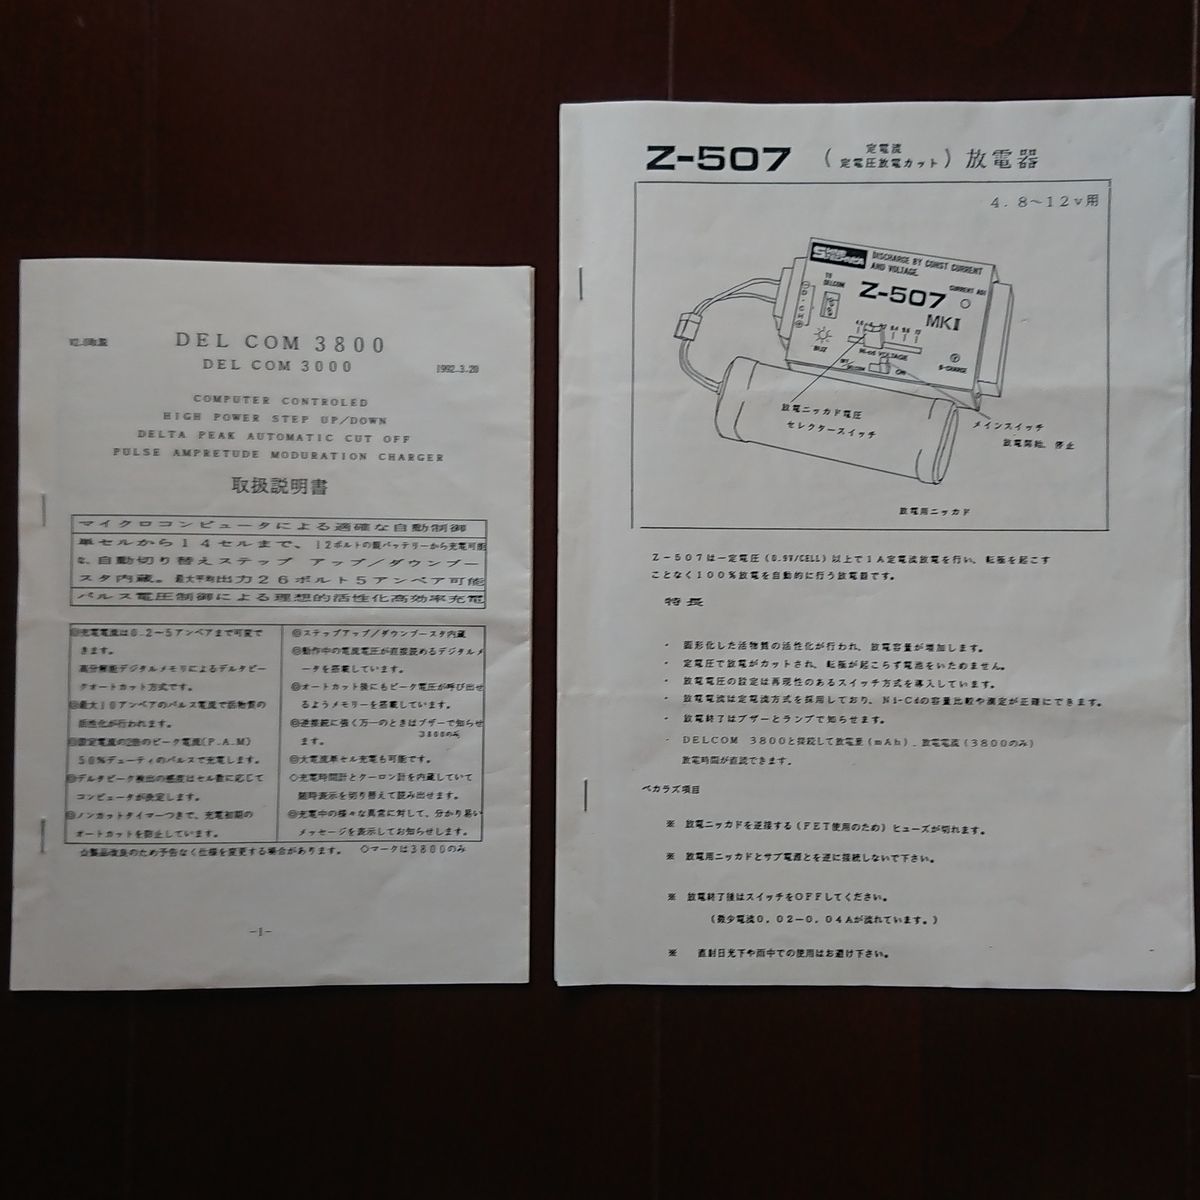 V2.0取説
DEL COM 3800
DEL COM 3000
1992.3.20
COMPUTER CONTROLED
HIGH POWER STEP UP/DOWN
DELTA PEAK AUTOMATIC CUT OFF
PULSE AMPRETUDE MODURATION CHARGER
取扱説明書
マイクロコンピュータによる適確な自動制御
単セルから14セルまで、12ボルトの親バッテリーから充電可能
な、自動切り替えステップ アップ/ダウンブー
スタ内蔵。最大平均出力26ボルト5アンペア可能
パルス電圧制御による理想的活性化高効率充電
◎充電電流は0.2~5アンペアまで可変で
きます。
高分解能デジタルメモリによるデルタピー
クオートカット方式です。
◎最大10アンペアのパルス電流で活物質の
活性化が行われます。
◎設定電流の2倍のピーク電流(P.A.M)
50%デューティのパルスで充電します。
◎デルタピーク検出の感度はセル数に応じて
コンピュータが決定します。
◎ノンカットタイマーつきで、充電初期の
オートカットを防止しています。
◎ステップアップ/ダウンブースタ内蔵
◎動作中の電流電圧が直接読めるデジタルメ
ータを搭載しています。
◎オートカット後にもピーク電圧が呼び出せ
るようメモリーを搭載しています。
◎逆接続に強く万一のときはブザーで知らせ
ます。 3800のみ
◎大電流単セル充電も可能です。
◇充電時間計とクーロン計を内蔵していて
随時表示を切り替えて読み出せます。
◎充電中の様々な異常に対して、分かり易い
メッセージを表示してお知らせします。
☆製品改良のため予告なく仕様を変更する場合があります。 ◇マークは3800のみ
-1-
Z-507 (定電流 定電圧放電カット) 放電器
4.8~12v用
DISCHARGE BY CONST CURRENT
AND VOLTAGE
TO DELCOM
Z-507
CURRENT ADJ
MKⅡ
D・CH
BUZ
Ni-cd VOLTAGE
ON
放電ニッカド電圧
セレクタースイッチ
メインスイッチ
放電開始、停止
放電用ニッカド
Z-507は一定電圧(0.9V/CELL)以上で1A定電流放電を行い、転極を起こす
ことなく100%放電を自動的に行う放電器です。
特長
・ 固形化した活物質の活性化が行われ、放電容量が増加します。
・ 定電圧で放電がカットされ、転極が起こらず電池をいためません。
・ 放電電圧の設定は再現性のあるスイッチ方式を導入しています。
・ 放電電流は定電流方式を採用しており、Ni-Cdの容量比較や測定が正確にできます。
・ 放電終了はブザーとランプで知らせます。
・ DELCOM 3800と接続して放電量(mAh)、放電電流(3800のみ)
放電時間が直読できます。
ベカラズ項目
※ 放電ニッカドを逆接する(FET使用のため)ヒューズが切れます。
※ 放電用ニッカドとサブ電源とを逆に接続しないで下さい。
※ 放電終了後はスイッチをOFFしてください。
(微少電流0.02-0.04Aが流れています。)
※ 直射日光下や雨中での使用はお避け下さい。